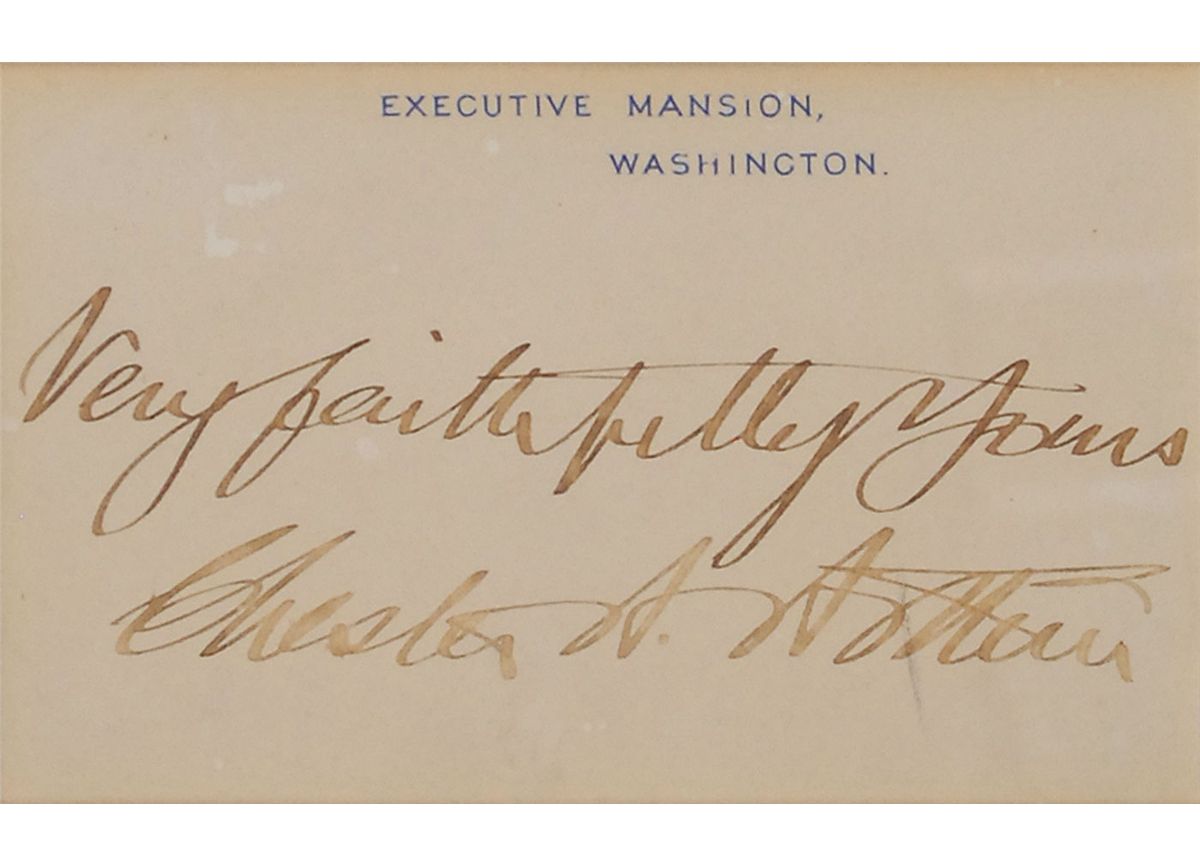 EXECUTIVE MANSION,
WASHINGTON.
Very faithfully Yours
Chester A. Arthur